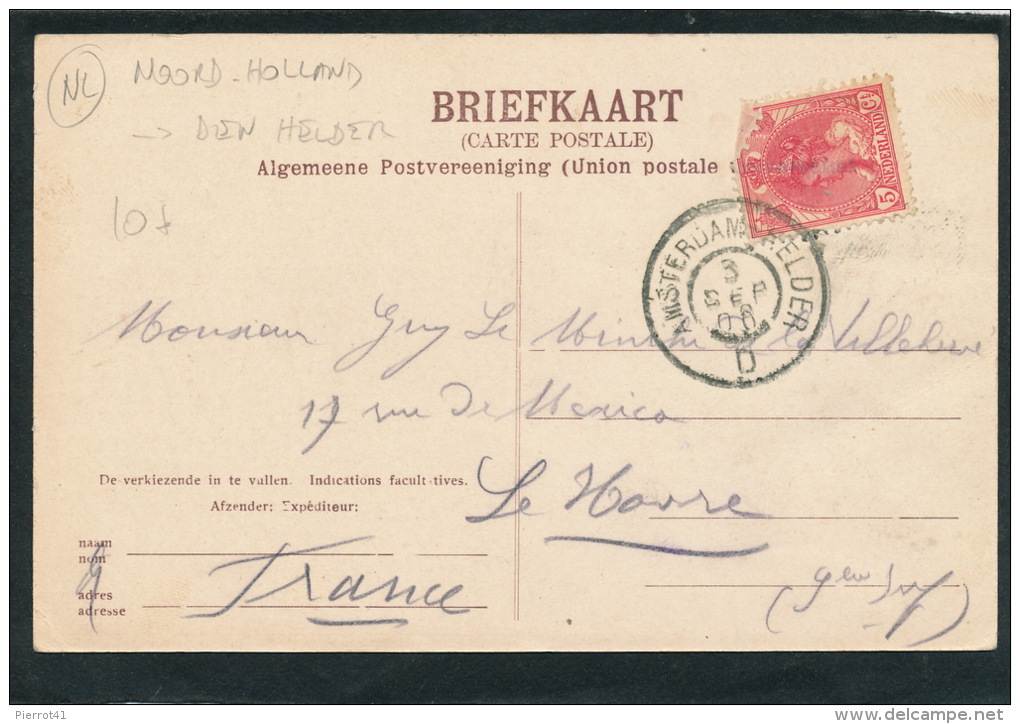 NL
NOORD-HOLLAND
-> DEN HELDER
10f
BRIEFKAART
(CARTE POSTALE)
Algemeene Postvereeniging (Union postale
5 NEDERLAND 5
AMSTERDAM HELDER
3
SEP
D
Monsieur Guy Le
la Villehervé
17 rue de Mexico
De verkiezende in te vullen. Indications facultatives.
Afzender: Expéditeur:
Le Havre
naam
nom
France
adres
adresse
Pierrot41
delcampe.net